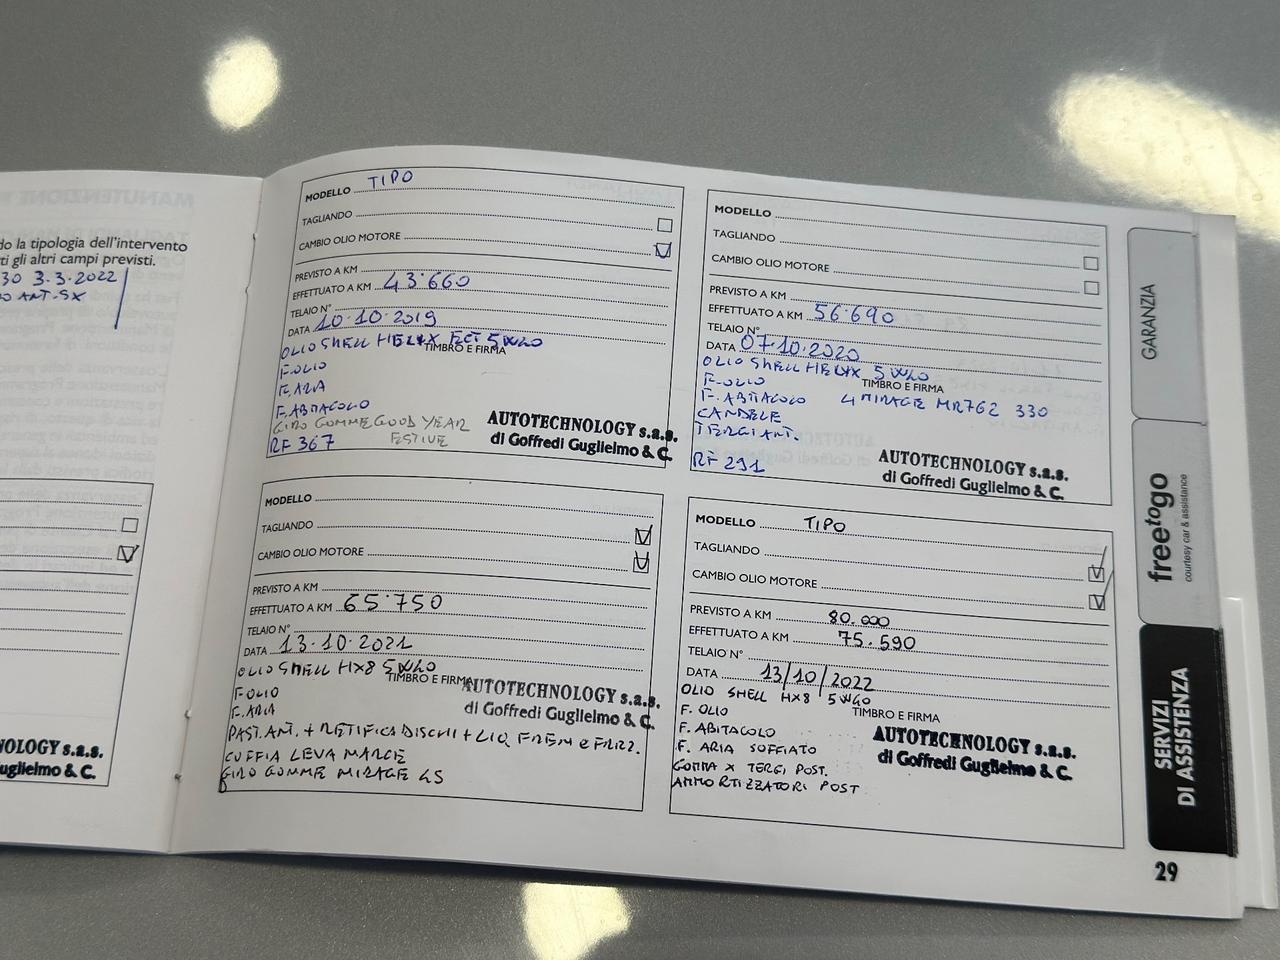 MANUTENZIONE
do la tipologia dell'intervento
ti gli altri campi previsti.
30 3.3.2022
ANT.SX
OLOGY s.a.s.
uglielmo & C.
MODELLO TIPO
TAGLIANDO
CAMBIO OLIO MOTORE
PREVISTO A KM
EFFETTUATO A KM 43.660
TELAIO N°
DATA 10.10.2019
OLIO SHELL HELIX ECT 5W40
TIMBRO E FIRMA
F.OLIO
F.ARIA
F.ABITACOLO
GIRO GOMME GOOD YEAR
RF 367
AUTOTECHNOLOGY s.a.s.
di Goffredi Guglielmo & C.
MODELLO
TAGLIANDO
CAMBIO OLIO MOTORE
PREVISTO A KM
EFFETTUATO A KM 56.690
TELAIO N°
DATA 07.10.2020
OLIO SHELL HELIX 5W40
TIMBRO E FIRMA
F.OLIO
F.ABITACOLO
4 MIRAGE MR762 330
CANDELE
TERGI ANT.
RF 291
AUTOTECHNOLOGY s.a.s.
di Goffredi Guglielmo & C.
MODELLO
TAGLIANDO
CAMBIO OLIO MOTORE
PREVISTO A KM
EFFETTUATO A KM 65.750
TELAIO N°
DATA 13.10.2021
OLIO SHELL HX8 5W40
TIMBRO E FIRMA
F.OLIO
F.ARIA
AUTOTECHNOLOGY s.a.s.
di Goffredi Guglielmo & C.
PAST.ANT. + RETIFICA DISCHI + LIQ. FRENI e FRIZ.
CUFFIA LEVA MARCE
GIRO GOMME MIRAGE 4S
MODELLO TIPO
TAGLIANDO
CAMBIO OLIO MOTORE
PREVISTO A KM 80.000
EFFETTUATO A KM 75.590
TELAIO N°
DATA 13/10/2022
OLIO SHELL HX8 5W40
TIMBRO E FIRMA
F. OLIO
F. ABITACOLO
F. ARIA SOFFIATO
GOMMA X TERGI POST.
AMMORTIZZATORI POST
AUTOTECHNOLOGY s.a.s.
di Goffredi Guglielmo & C.
GARANZIA
freetogo
courtesy car & assistance
SERVIZI
DI ASSISTENZA
29